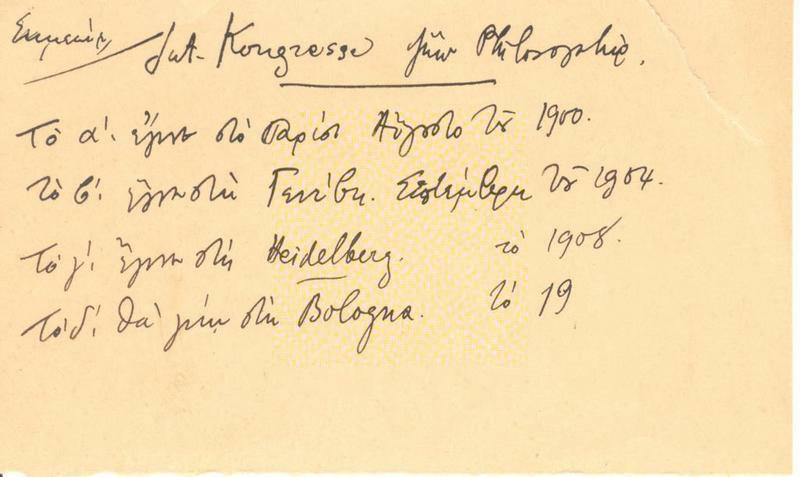 Σημείωση Int. Kongresse für Philosophie.
Τὸ α΄. ἔγινε στὸ Παρίσι Αὔγουστο τοῦ 1900.
Τὸ β΄. ἔγινε στὴ Γενέβη. Σεπτέμβρη τοῦ 1904.
Τὸ γ΄. ἔγινε στὴ Heidelberg. τὸ 1908.
Τὸ δ΄. θὰ γίνη στὴ Bologna. τὸ 19